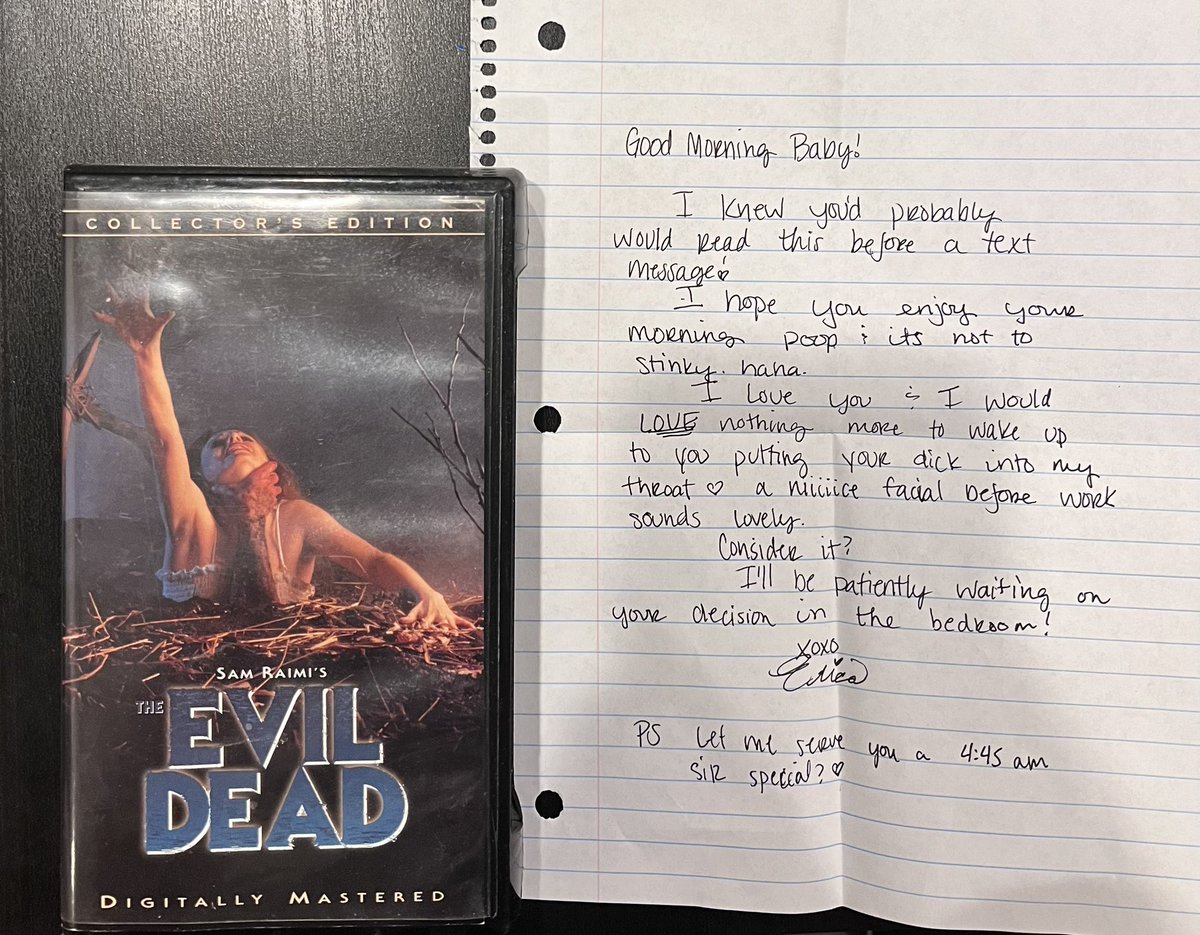 COLLECTOR'S EDITION
SAM RAIMI'S
THE EVIL
DEAD
DIGITALLY MASTERED
Good Morning Baby!
I knew you'd probably
would read this before a text
message
I hope you enjoy your
morning poop & its not to
stinky. haha.
I love you & I would
LOVE nothing more to wake up
to you putting your dick into my
throat ♡ a niiiiice facial before work
sounds lovely.
Consider it?
I'll be patiently waiting on
your decision in the bedroom!
xoxo
Erica
PS Let me serve you a 4:45 am
SIR special? ♡